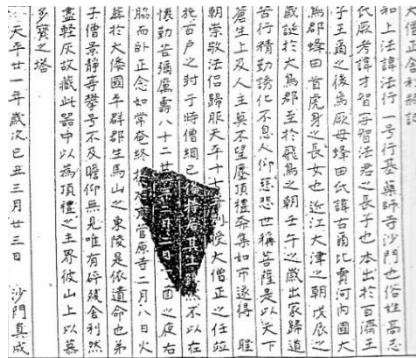 大僧正舍利瓶記
和上法諱法行一号行基藥師寺沙門也俗姓高志
氏厥考諱才智字智法君之長子也本出於百濟王
子王爾之後焉厥妣蜂田氏諱古爾比賣河內國大
鳥郡蜂田首虎身之長女也近江大津之朝戊辰之
歲誕於大鳥郡至於飛鳥之朝壬午之歲出家歸道
苦行精勤誘化不息人仰慈悲世稱菩薩是以天下
蒼生上及人主莫不望塵頂禮奔集如市遂得聖
朝崇敬法侶歸服天平十七年別授大僧正之任並
施百戶之封于時僧綱已備特居其上雖然不以在
懷勤苦彌厲壽八十二廿一年二月二日丁酉之夜右
脇而臥正念如常奄終於右京菅原寺二月八日火
葬於大倭國平群郡生馬山之東陵是依遺命也弟
子僧景靜等攀号不及瞻仰無見唯有碎殘舍利然
盡輕灰故藏此器中以為頂禮之主界彼山上以慕
多寶之塔
天平廿一年歲次己丑三月廿三日 沙門真成